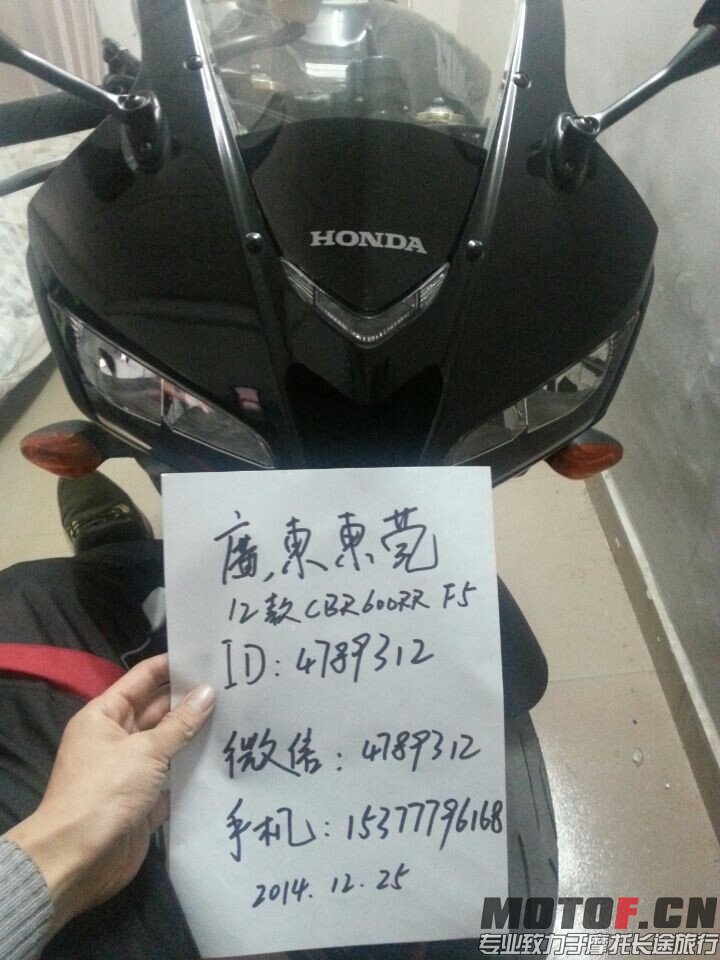 HONDA
廣東東莞
12款CBR600RR F5
ID:4789312
微信:4789312
手机:15377796168
2014.12.25
MOTOF.CN
专业致力于摩托长途旅行